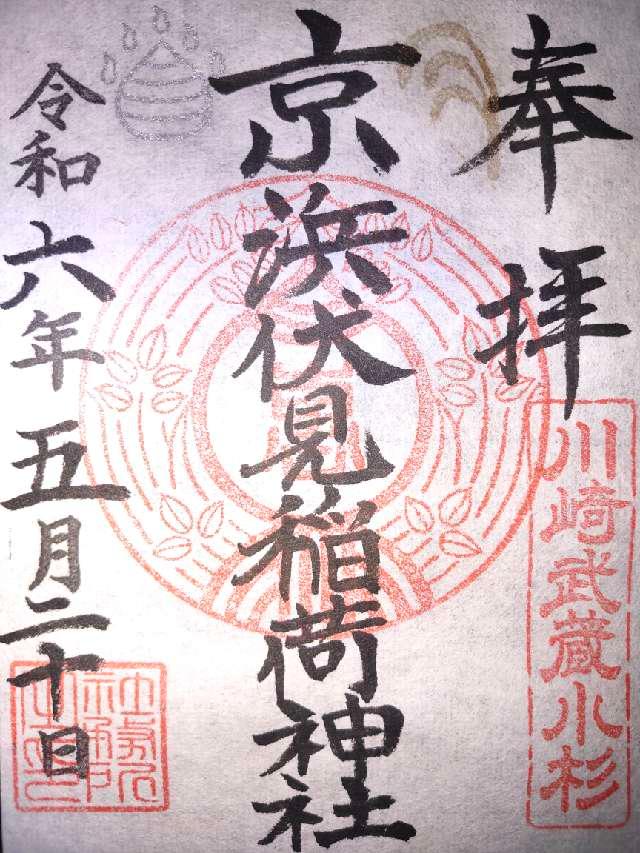 奉拝
川崎武蔵小杉
京浜伏見稲荷神社
令和六年五月二十日
社務所